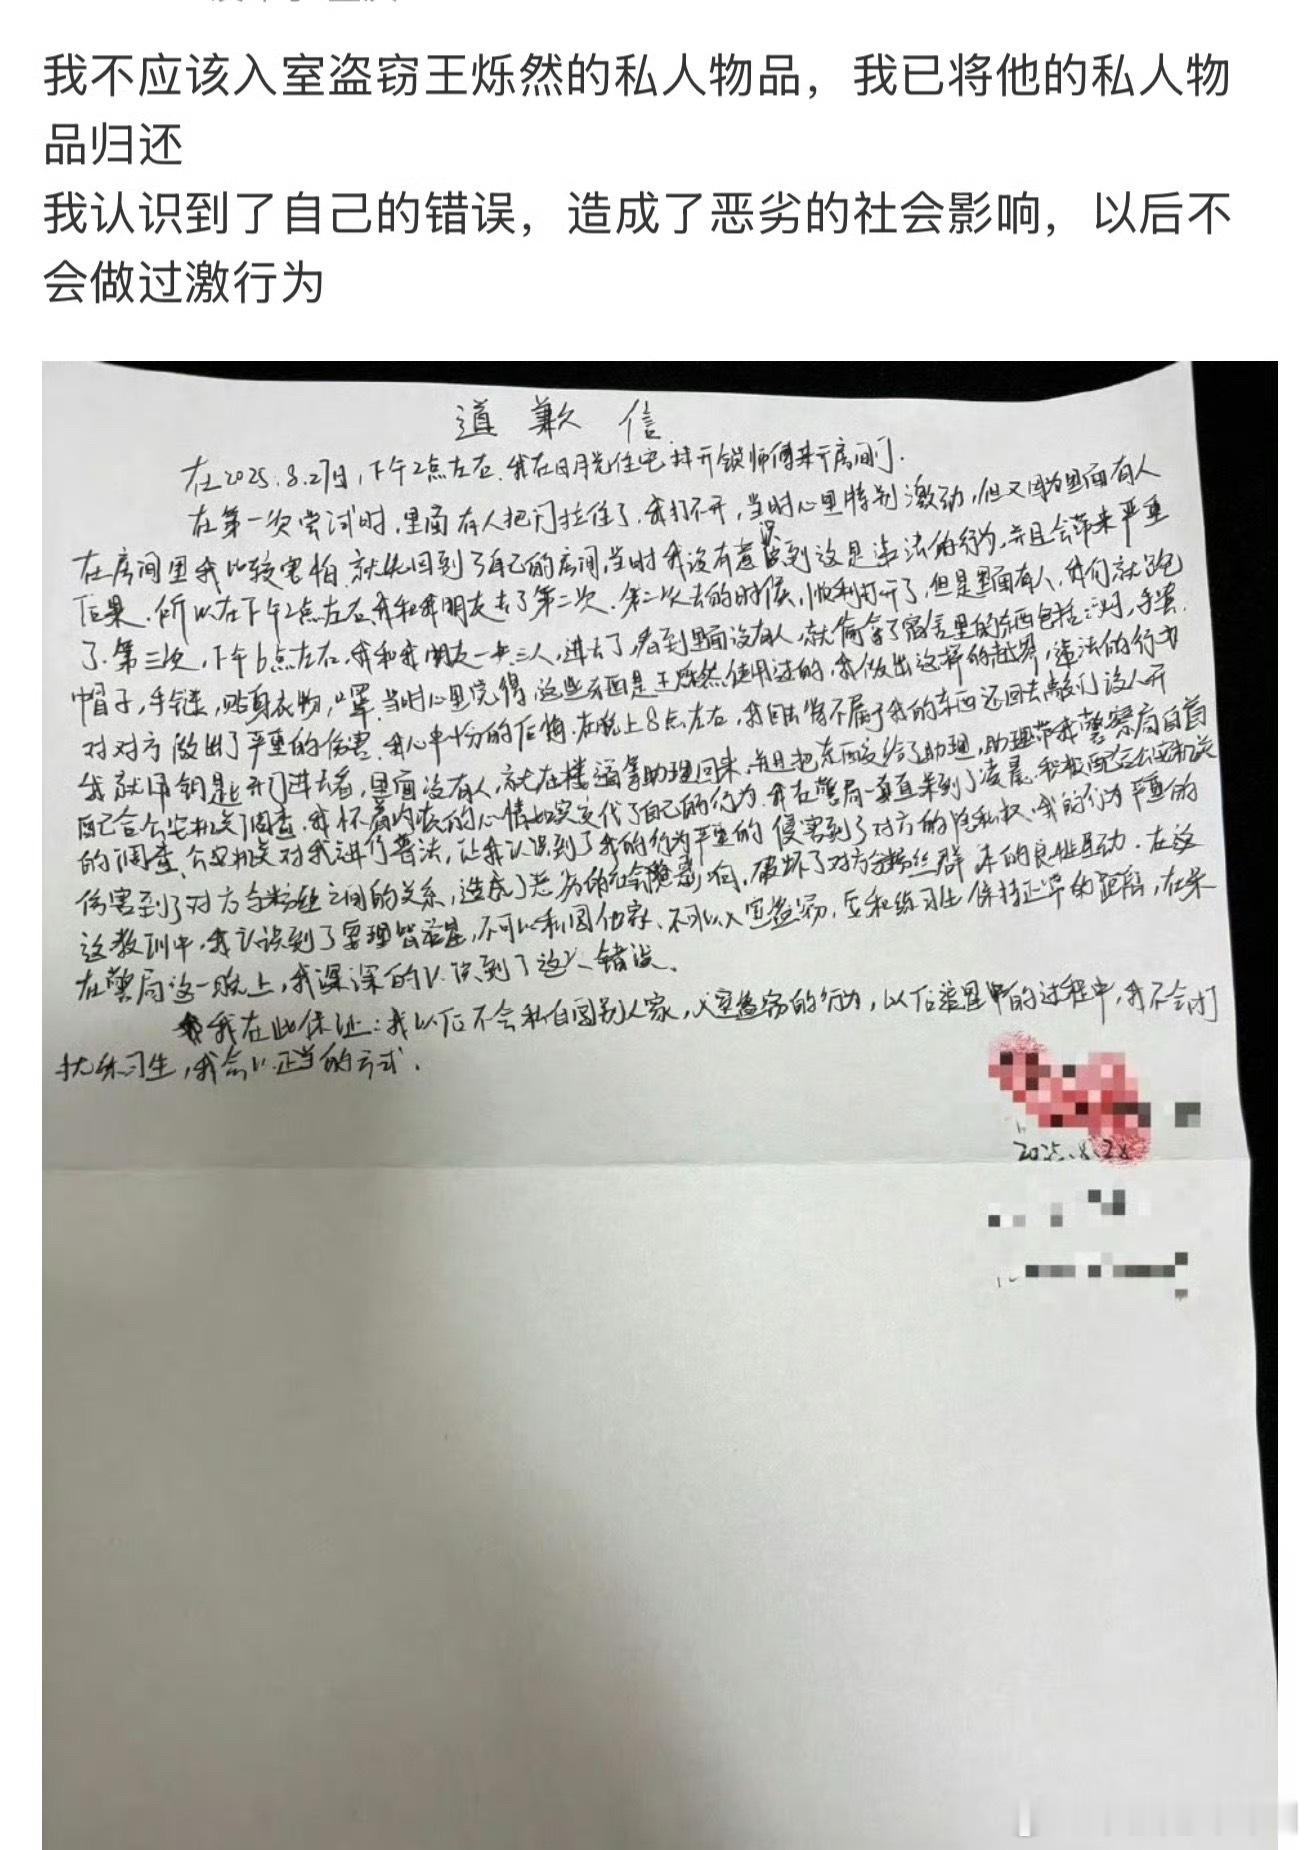 我不应该入室盗窃王烁然的私人物品，我已将他的私人物
品归还
我认识到了自己的错误，造成了恶劣的社会影响，以后不
会做过激行为
道歉信
在2025.8.27日，下午2点左右，我在日月光住宅，找开锁师傅来开房间门.
在第一次尝试时，里面有人把门拉住了，我打不开，当时心里特别激动，但又因为里面有人
在房间里我比较害怕，就先回到了自己的房间，当时我没有意识到这是违法的行为，并且会带来严重
后果，所以在下午2点左右，我和我朋友去了第二次，第二次去的时候，顺利打开了，但是里面有人，我们就跑
了.第三次，下午6点左右，我和我朋友一共三人，进去了，看到里面没有人，就偷拿了宿舍里的东西包括：
帽子，手链，贴身衣物，口罩，当时心里觉得，这些东西是王烁然使用过的，我做出这样的越界，违法的行为
对对方做出了严重的伤害，我心中十分的后悔，在晚上8点左右，我回去将不属于我的东西还回去敲门没人开
我就用钥匙开门进去看，里面没有人，就在楼道等助理回来，并且把东西交给了助理，助理带我警察局自首
配合公安机关调查，我怀着内疚的心情如实交代了自己的行为，我在警局一直呆到了凌晨，积极配合公安机关
的调查，公安机关对我进行普法，让我认识到了我的行为严重的侵害到了对方的隐私权，我的行为严重的
伤害到了对方与粉丝之间的关系，造成了恶劣的社会影响，破坏了对方与粉丝群 的良性互动.在这
这教训中，我认识到了要理智追星，不可以私闯他家、不可以入室盗窃，应和练习生保持正常的距离，在呆
在警局这一晚上，我深深的认识到了这个错误.
我在此保证：我以后不会私自闯别人家，入室盗窃的行为，以后追星中的过程中，我不会打
扰练习生，我会以正当的方式.
2025.8.28